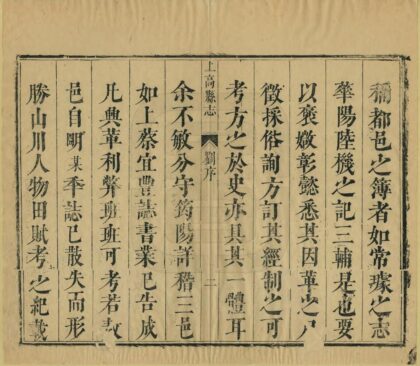 稱都邑之簿者如常璩之志
華陽陸機之記三輔是也要
以褒媺彰懿悉其因革之
徵採俗詢方訂其經制之可
考方之於史亦具其一體耳
上高縣志
劉序
二
余不敏分守筠陽詳稽三邑
如上蔡宜豐誌書業已告成
凡典革利弊班班可考若敖
邑自明某季誌已散失而形
勝山川人物田賦考之紀載